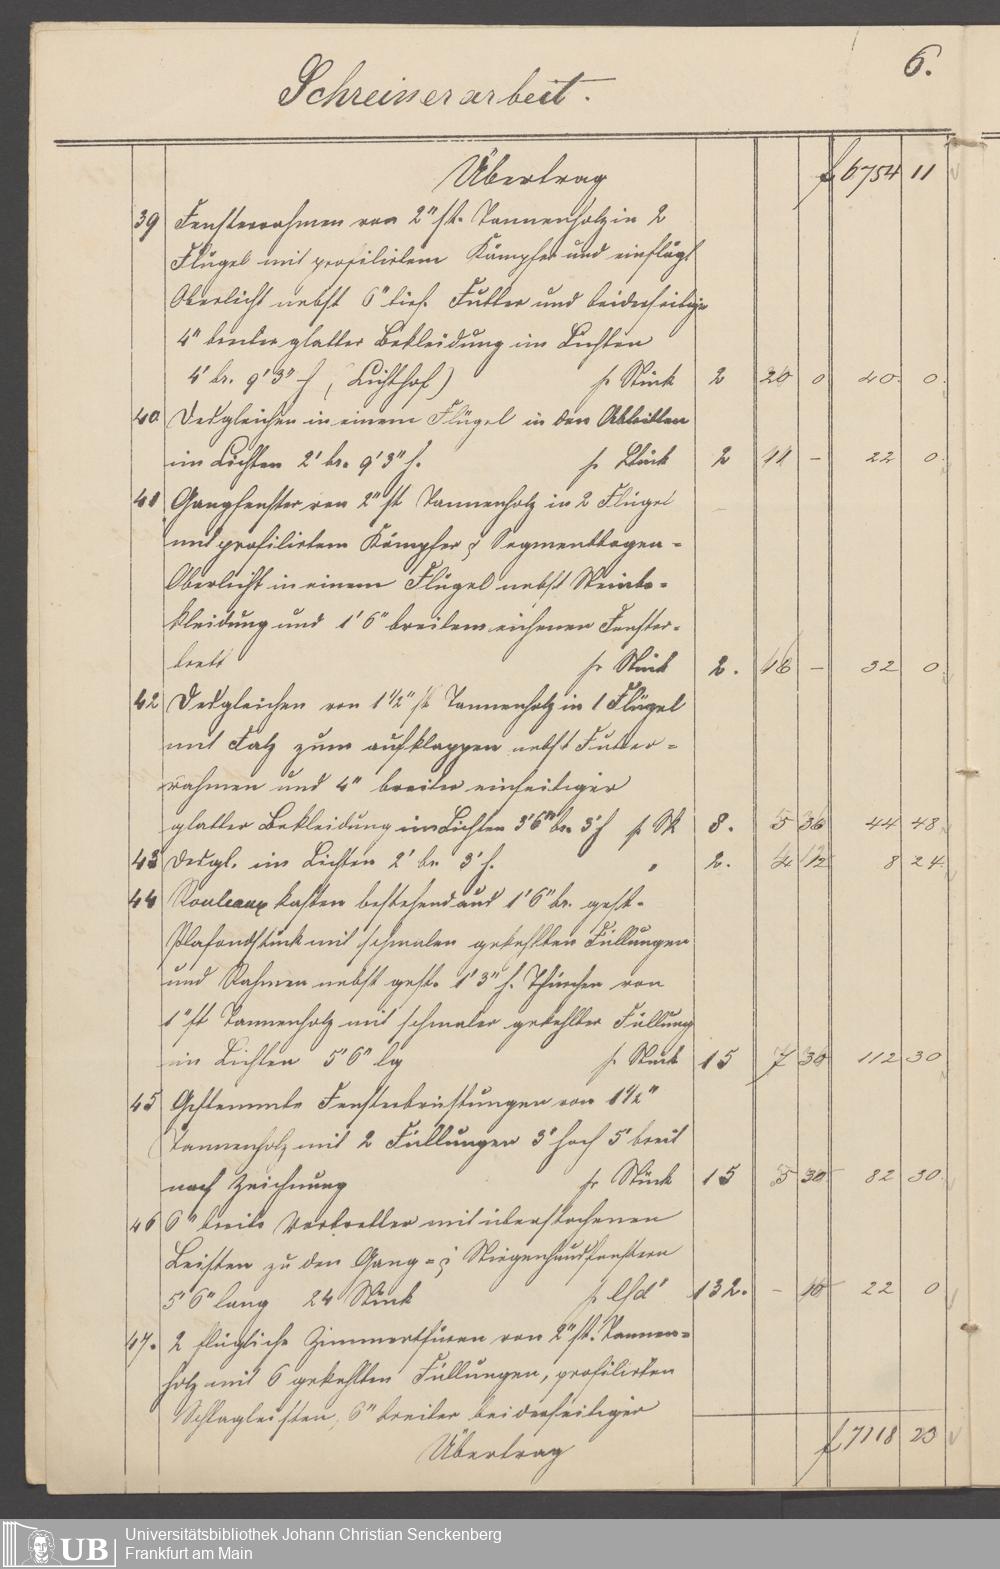 6.
Schreinerarbeit.
Übertrag f 6754 11
39 Fensterrahmen von 2" st. Tannenholz in 2
Flügel mit profilirtem Kämpfer und einflügl
Oberlicht nebst 6" tief. Futter und beiderseitige
4" breiter glatter Bekleidung im Lichten
4' br. 9' 3" h (Lichthof) pr Stück 2 20 0 40. 0.
40 Desgleichen in einem Flügel in den Abtritten
im Lichten 2' br. 9' 3" h. pr Stück 2 11 - 22 0.
41 Gangfenster von 2" st Tannenholz in 2 Flügel
mit profilirtem Kämpfer & Segmentbogen-
Oberlicht in einem Flügel nebst
kleidung und 1' 6" breitem eichenen Fenster-
brett pr Stück 2. 16 - 32 0
42 Desgleichen von 1 1/2" st Tannenholz in 1 Flügel
mit Falz zum aufklappen nebst Futter-
rahmen und 4" breiter einseitiger
glatter Bekleidung im Lichten 3' 6" br. 3' h pr St 8. 5 36 44 48
43 Desgl. im Lichten 2' br 3' h. " 2. 4 12 8 24.
44 Rouleaux kasten bestehend aus 1' 6" br. gest.
Plafondstück mit schmalen gekehlten Füllungen
und Rahmen nebst gest. 1' 3" h. Thürchen von
1" st Tannenholz mit schmaler gekehlter Füllung
im Lichten 5' 6" lg pr Stück 15 7 30 112 30
45 Gestemmte Fensterbrüstungen von 1 1/2"
Tannenholz mit 2 Füllungen 3' hoch 5' breit
nach Zeichnung pr Stück 15 5 30 82 30.
46 6" breite mit überstochenen
Leisten zu den Gang- & Stiegenhausfenstern
5' 6" lang 24 Stück pr lfd' 132. - 10 22 0
47. 2 flüglige Zimmerthüren von 2" st. Tannen-
holz mit 6 gekehlten Füllungen, profilirten
Schlagleisten, 6" breiter beiderseitiger
Übertrag f 7118 23
UB Universitätsbibliothek Johann Christian Senckenberg
Frankfurt am Main